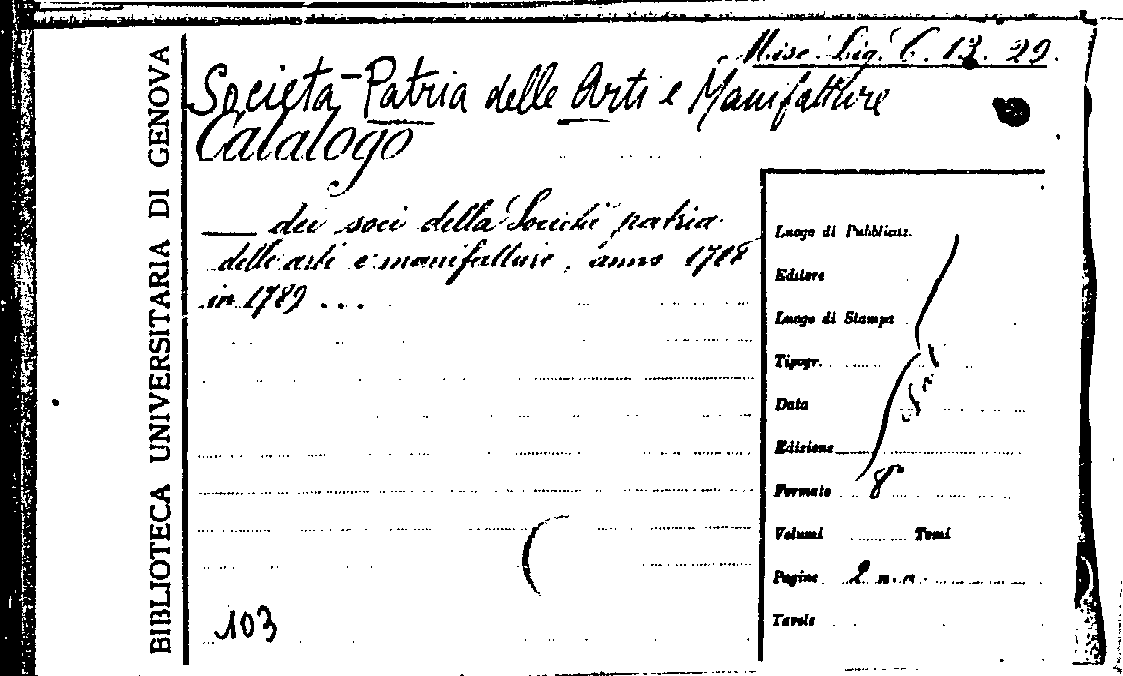 BIBLIOTECA UNIVERSITARIA DI GENOVA
Misc. Lig. C. 13. 29.
Società Patria delle Arti e Manifatture
Catalogo
___ dei soci della Società patria
delle arti e manifatture, anno 1788
in 1789 ...
103
Luogo di Pubblicaz.
Editore
Luogo di Stampa
Tipogr.
Data
Edizione
Formato 8°
Volumi Tomi
Pagine 2 n.n.
Tavole